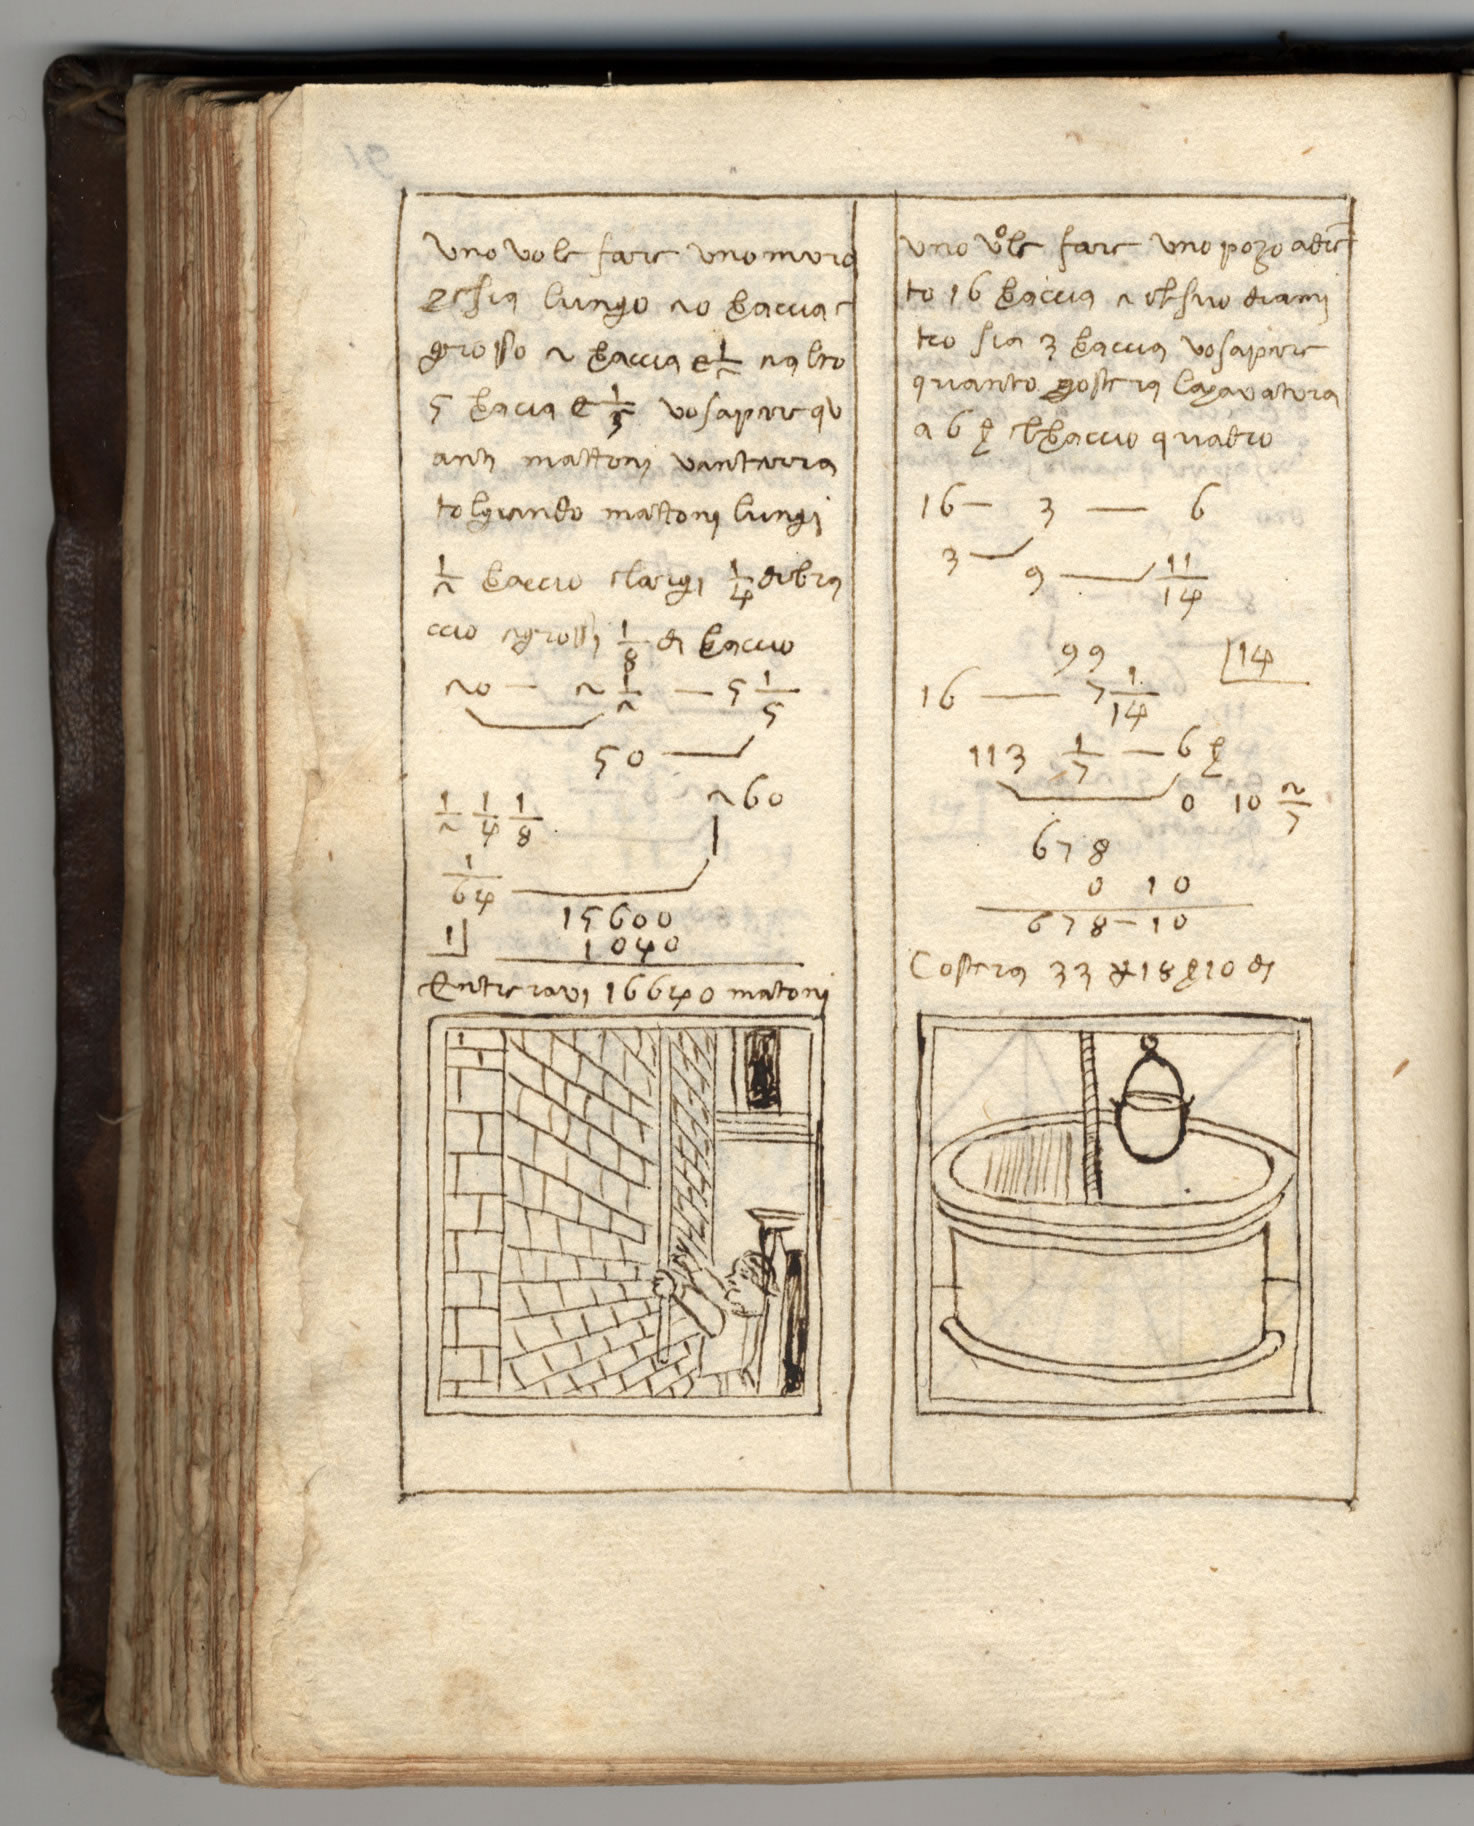 uno vole fare uno muro
che sia lungo 20 braccia e
grosso 2 braccia e 1/2 e alto
5 bracia e 1/5 vo sapere qu
anti mattoni v'enterra
togliendo mattoni lungi
1/2 braccio e largi 1/4 di bra
ccio e grossi 1/8 di braccio
20 — 2 1/2 — 5 1/5
50
260
1/2 1/4 1/8
1/64
15600
1 1040
Enteravi 16640 matoni
uno vole fare uno pozo a dre
to 16 braccia e el suo diami
tro sia 3 braccia vo sapere
quanto gostera la cavatura
a 6 ꝭ el braccio quadro
16 — 3 — 6
3
9 — 11/14
99 14
16 — 7 1/14
113 1/7 — 6 ꝭ
0 10 2/7
678
0 10
678 — 10
Costera 33 18 ꝭ 10 di
91